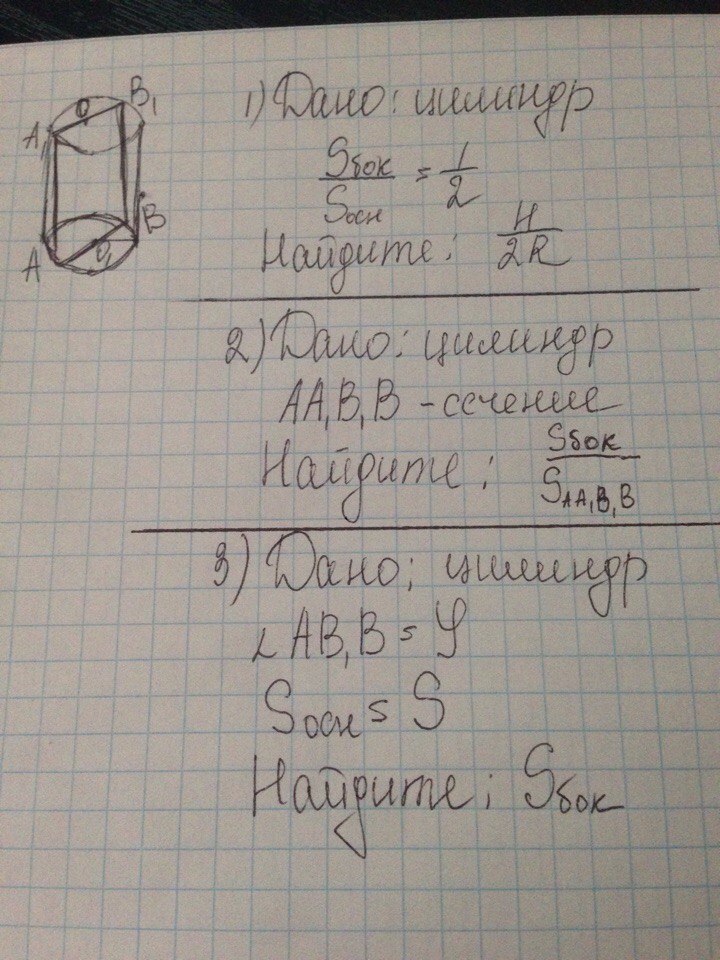 A₁ O B₁
A O₁ B
1) Дано: цилиндр
Sбок/Sосн = 1/2
Найдите: H/2R
2) Дано: цилиндр
AA₁B₁B - сечение
Найдите: Sбок/SAA₁B₁B
3) Дано: цилиндр
∠AB₁B = φ
Sосн = S
Найдите: Sбок